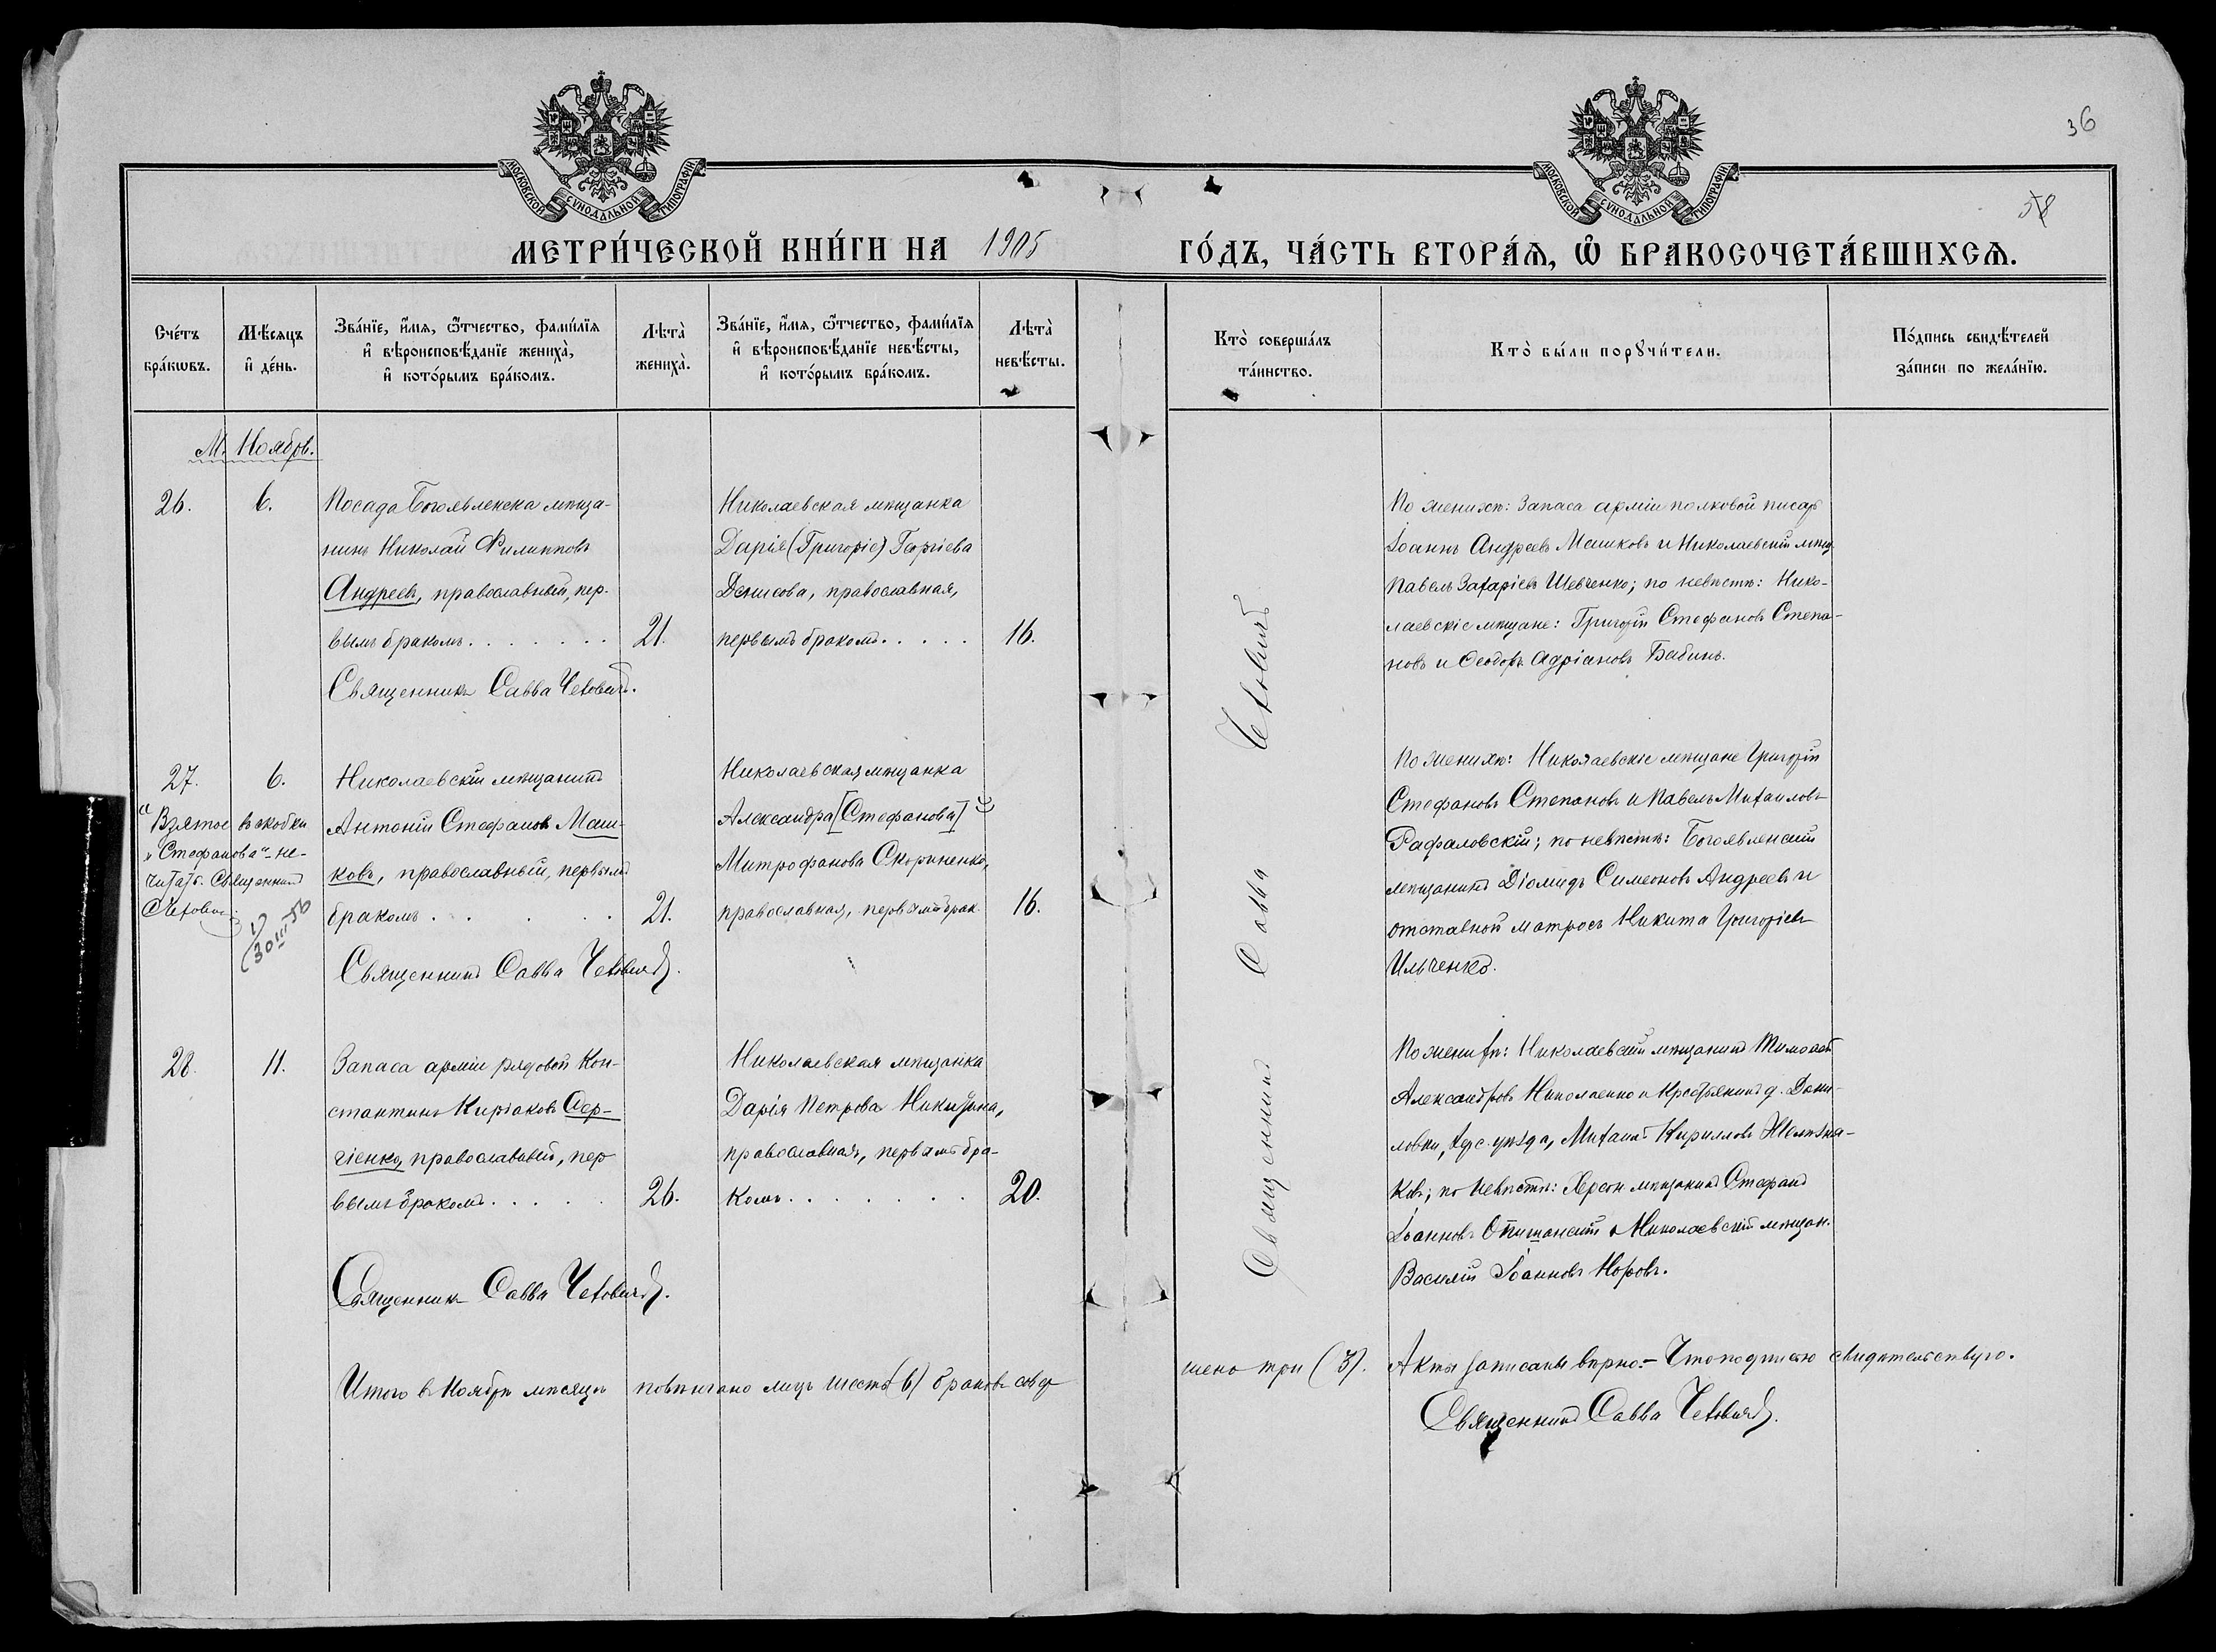 36
58
МОСКОВСКОЙ СѴНОДАЛЬНОЙ ТИПОГРАФІИ
МОСКОВСКОЙ СѴНОДАЛЬНОЙ ТИПОГРАФІИ
МЕТРИ́ЧЕСКОЙ КНИ́ГИ НА 1905 ГО́ДЪ, ЧА́СТЬ ВТОРА́Ѧ, Ѽ БРАКОСОЧЕТА́ВШИХСѦ.
Сче́тъ
бра́кωвъ.
Мѣ́сяцъ
и҆ де́нь.
Зва́нїе, и҆́мѧ, ѻ҆́тчество, фамѝлїѧ
и҆ вѣроисповѣ́данїе жениха̀,
и҆ кото́рымъ бра́комъ.
Лѣта̀
жениха̀.
Зва́нїе, и҆́мѧ, ѻ҆́тчество, фамѝлїѧ
и҆ вѣроисповѣ́данїе невѣ́сты,
и҆ кото́рымъ бра́комъ.
Лѣта̀
невѣ́сты.
Кто̀ соверша́лъ
та́инство.
Кто̀ бы́ли порꙋчи́тели.
По́дпись свидѣ́телей
за́писи по жела́нїю.
М. Ноябрь.
26.
6.
Посада Богоявленска мѣща-
нинъ Николай Филипповъ
Андреевъ, православный, пер-
вымъ бракомъ . . . . . . .
21.
Священникъ Савва Чехович.
Николаевская мѣщанка
Дарія (Григоріе) Георгіева
Денисова, православная,
первымъ бракомъ . . . . .
16.
По женихѣ: Запаса арміи полковой писарь
Іоаннъ Андреевъ Машковъ и Николаевскій мѣщ.
Павелъ Захаріевъ Шевченко; по невѣстѣ: Нико-
лаевскіе мѣщане: Григорій Стефановъ Степа-
новъ и Ѳеодоръ Адріановъ Бабинъ.
27.
6.
"Взятое въ скобки
"Стефанова"- не-
читать. Священникъ
СЧехович
30 III 56
Николаевскій мѣщанинъ
Антоній Стефановъ Маш-
ковъ, православный, первымъ
бракомъ . . . . .
21.
Священникъ Савва Чехович.
Николаевская мѣщанка
Александра [Стефанова]
Митрофанова Скориненко,
православная, первымъ брак.
16.
По женихѣ: Николаевскіе мѣщане Григорій
Стефановъ Степановъ и Павелъ Михаиловъ
Рафаловскій; по невѣстѣ: Богоявленскій
мѣщанинъ Діомидъ Симеоновъ Андреевъ и
отставной матросъ Никита Григоріевъ
Ильченко.
28.
11.
Запаса арміи рядовой Кон-
стантинъ Киріаковъ Сер-
гіенко, православный, пер
вымъ бракомъ . . . . .
26.
Священникъ Савва Чехович.
Николаевская мѣщанка
Дарія Петрова Никитина,
православная, первымъ бра-
комъ . . . . . . .
20.
По женихѣ: Николаевскій мѣщанинъ Тимоѳей
Александровъ Николаенко и крестьянинъ д. Дани-
ловки, Херс. уѣзда, Михаилъ Кирилловъ Желѣзня-
ковъ; по невѣстѣ: Херсон мѣщанинъ Стефанъ
Іоанновъ и Николаевскій мѣщан.
Василій Іоанновъ Норовъ.
Священникъ Савва Чеховичъ
Итого въ Ноябрѣ мѣсяцѣ повѣнчано лицъ шесть (6) браковъ совер
шено три (3). Акты записаны вѣрно.- Что подписью свидѣтельствую.
Священникъ Савва Чехович.